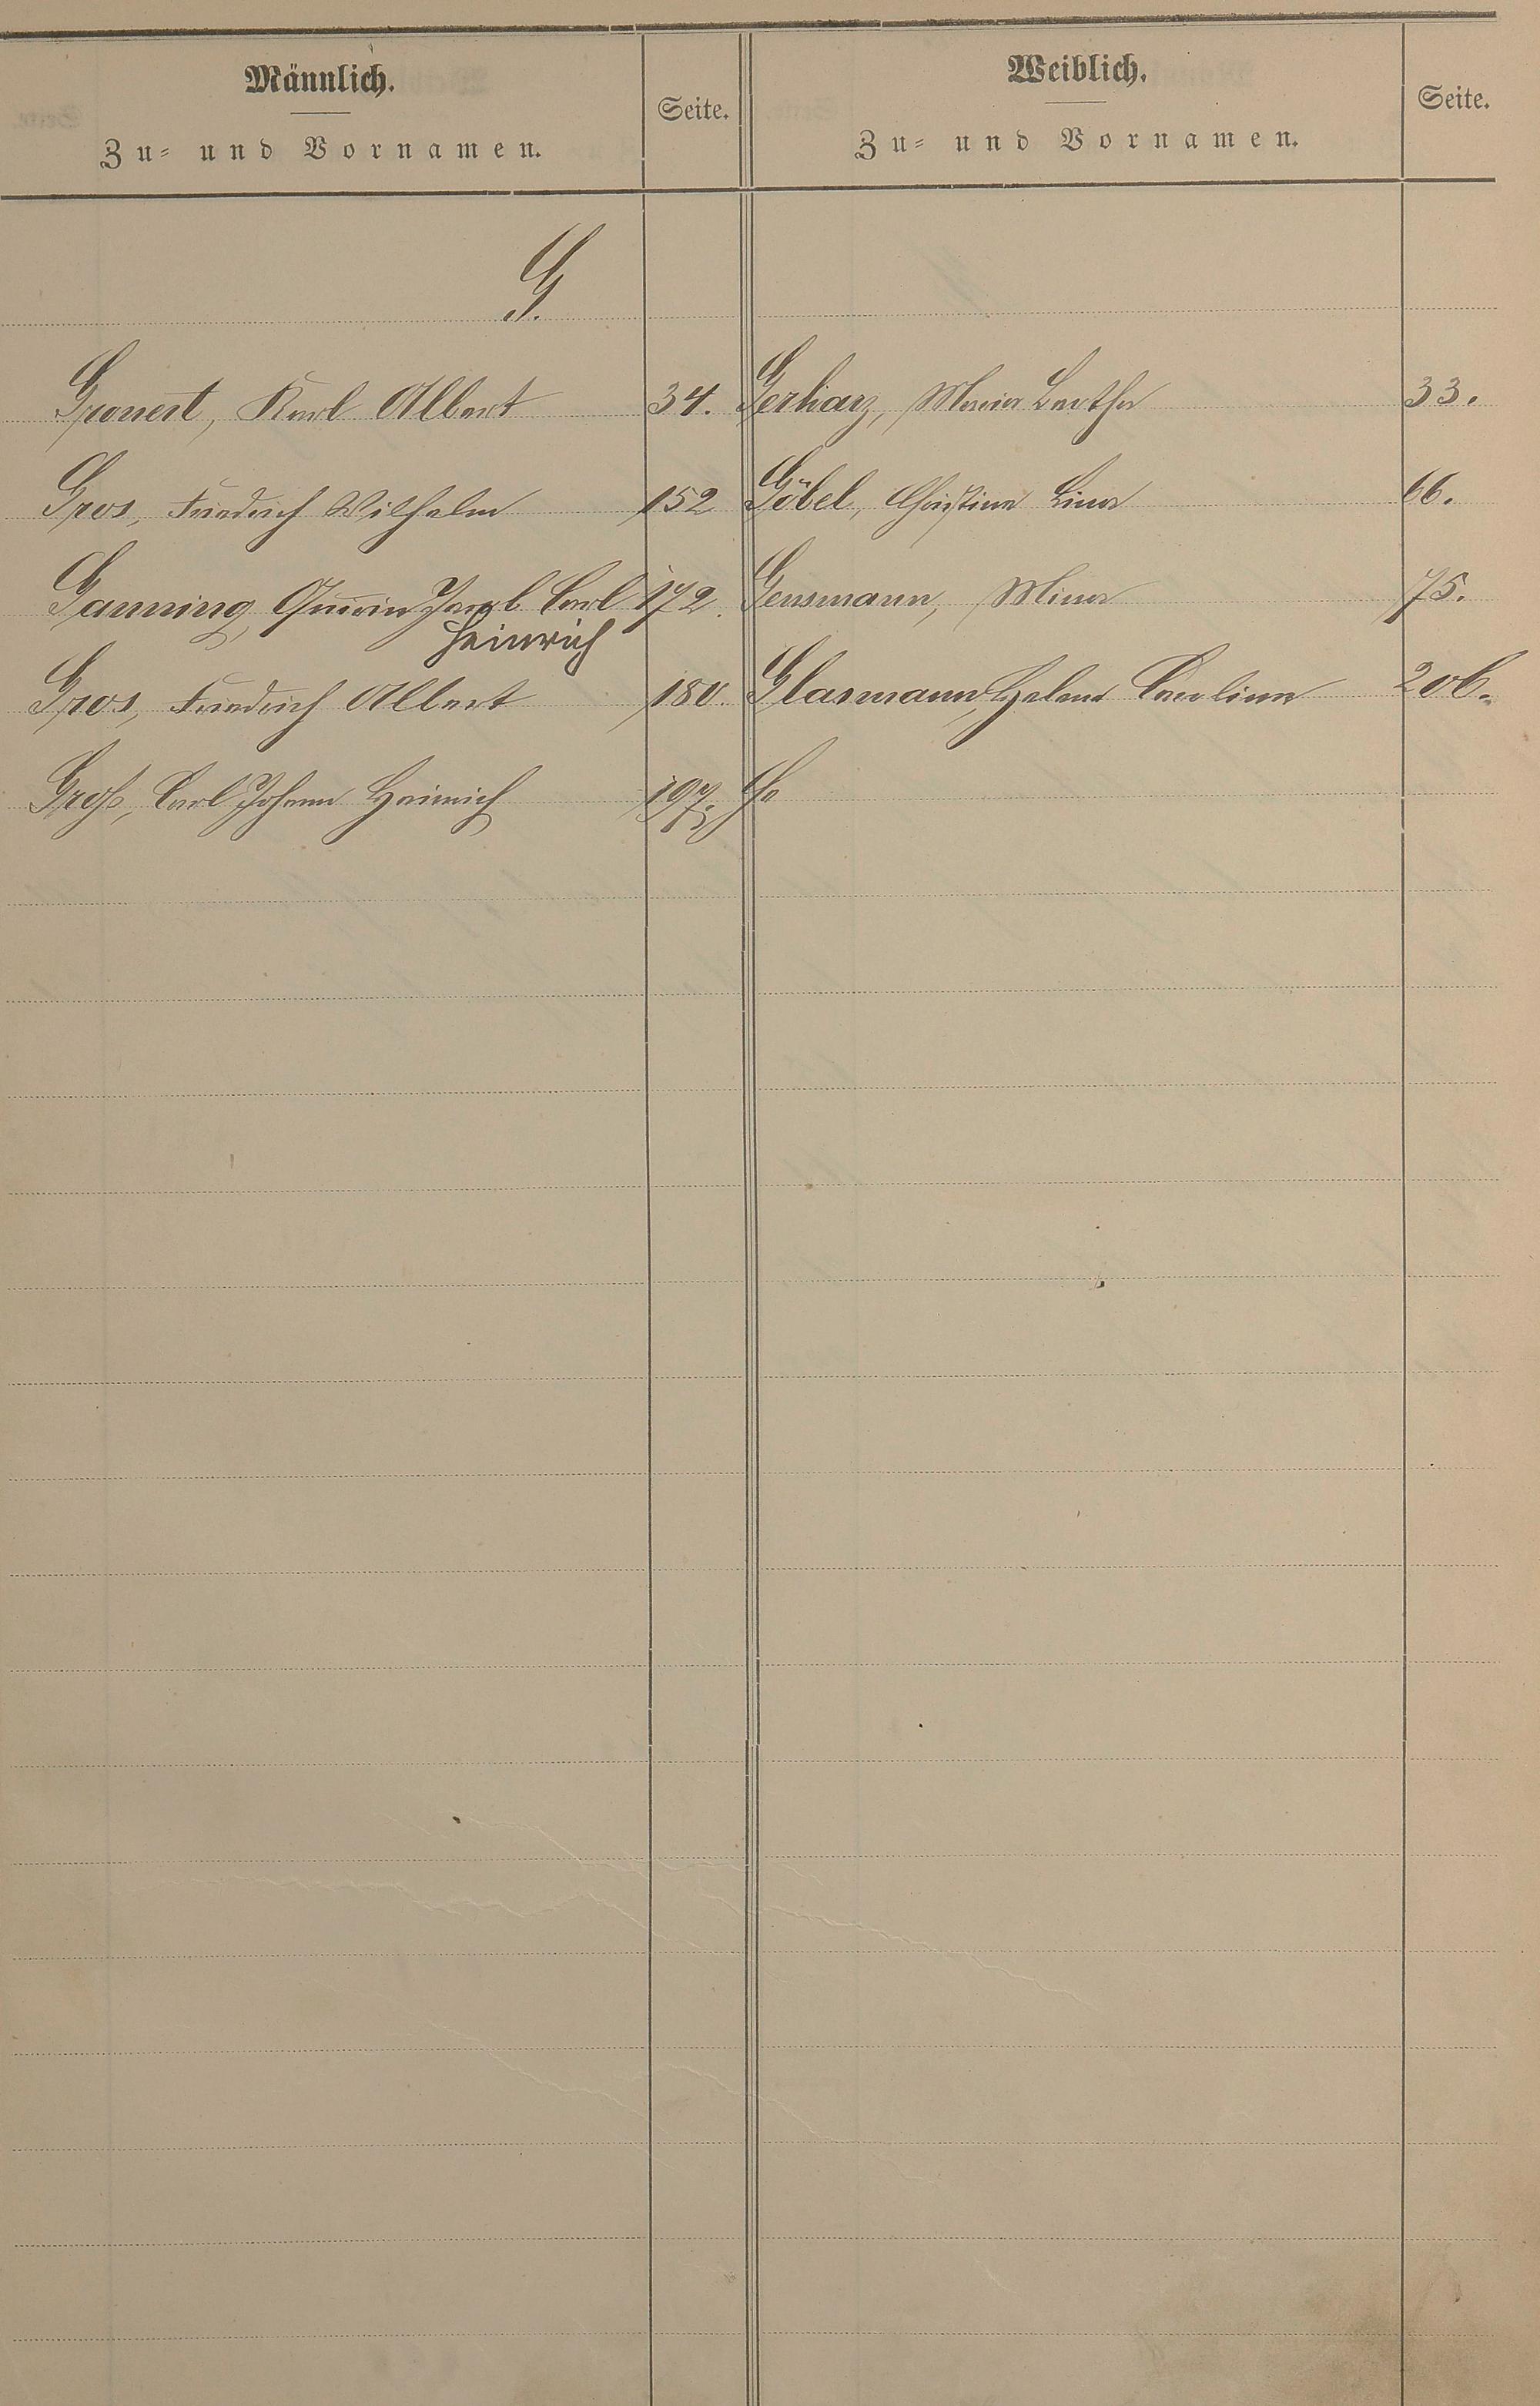 Männlich.
Zu- und Vornamen.
Seite.
Weiblich.
Zu- und Vornamen.
Seite.
G.
Gronert, Karl Albert 34. Gerharz, Maria Bertha 33.
Gros, Friedrich Wilhelm 152 Göbel, Christine Lina 66.
Ganning, Quirin Jacob Carl 172. Gensmann, Mina 75.
Heinrich
Gros, Friedrich Albert 180. Glasmann, Helene Caroline 206.
Groß, Carl Johann Heinrich 197.